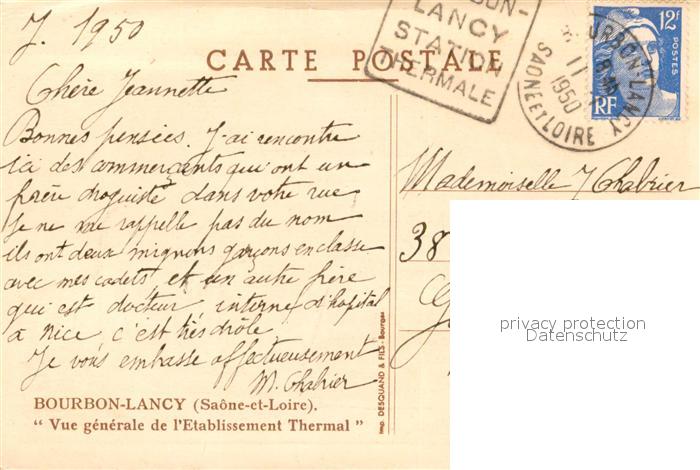 J. 1950
CARTE POSTALE
BON-
LANCY
STATION
THERMALE
BOURBON-LANCY
11
1950
SAONE ET LOIRE
12F
POSTES
RF
Chère Jeannette
Bonnes pensées. J'ai rencontré
ici des commerçants qui ont un
frère droguiste dans votre rue
Je ne me rappelle pas du nom
ils ont deux mignons garçons en classe
avec mes cadets, et un autre frère
qui est docteur interne d'hopital
à Nice c'est très drôle.
Je vous embrasse affectueusement
M. Chabrier
Mademoiselle J Chabrier
38
privacy protection
Datenschutz
BOURBON-LANCY (Saône-et-Loire).
“ Vue générale de l'Etablissement Thermal ”
Imp. DESQUAND & FILS - Bourges